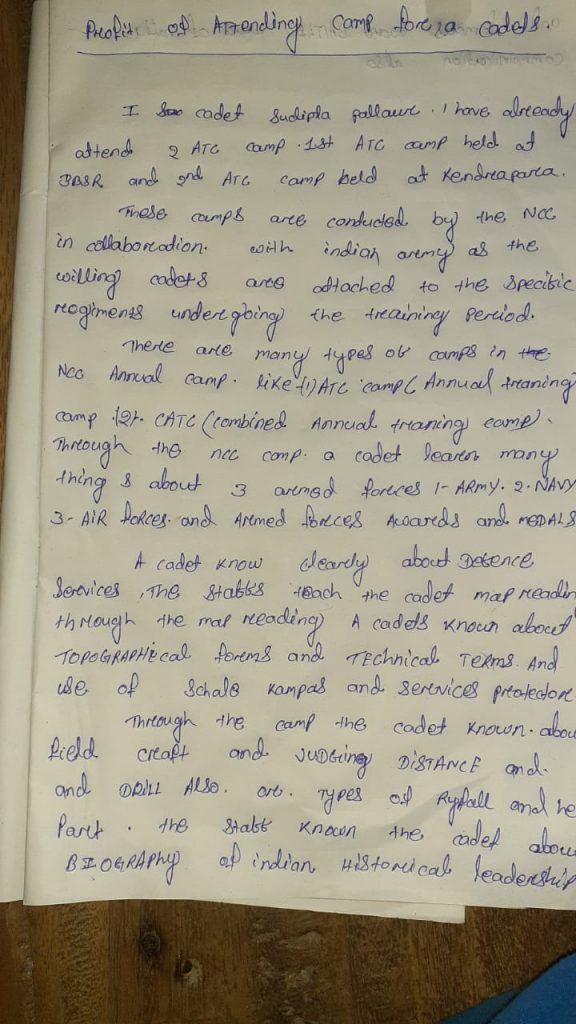 Profit of Attending Camp fore a cadets.
I cadet Sudipta pallaure. I have already
attend 2 ATC camp. 1st ATC camp held at
BBSR and 2nd ATC camp held at Kendreaparea.
These camps aree conducted by the NCC
in collaboreation. with indian aremy as the
willing cadets aree attached to the specific
reegiments undergoing the treaining period.
There aree many types of camps in the
NCC Annual camp. like 1) ATC camp ( Annual treaning
camp (2). CATC (combined Annual treaning camp).
Through the ncc camp. a cadet learen many
things about 3 aremed forces 1- ARMY. 2. NAVY
3- AIR forces. and Aremed forces Awareds and MEDALS
A cadet know clearly about Defence
Services, The staffs teach the cadet map readin
through the map reading) A cadets known about
TOPOGRAPHical forems and TEChnical Terems. And
use of Schale Kampas and serevices preotectore
Through the camp the cadet known. abou
field creaft and JUDGing DISTANCE and.
and DRILL Also. ore. Types of Ryfall and
Part. the staff known the cadet abou
BIOGRAPHY of indian Historeical leadership